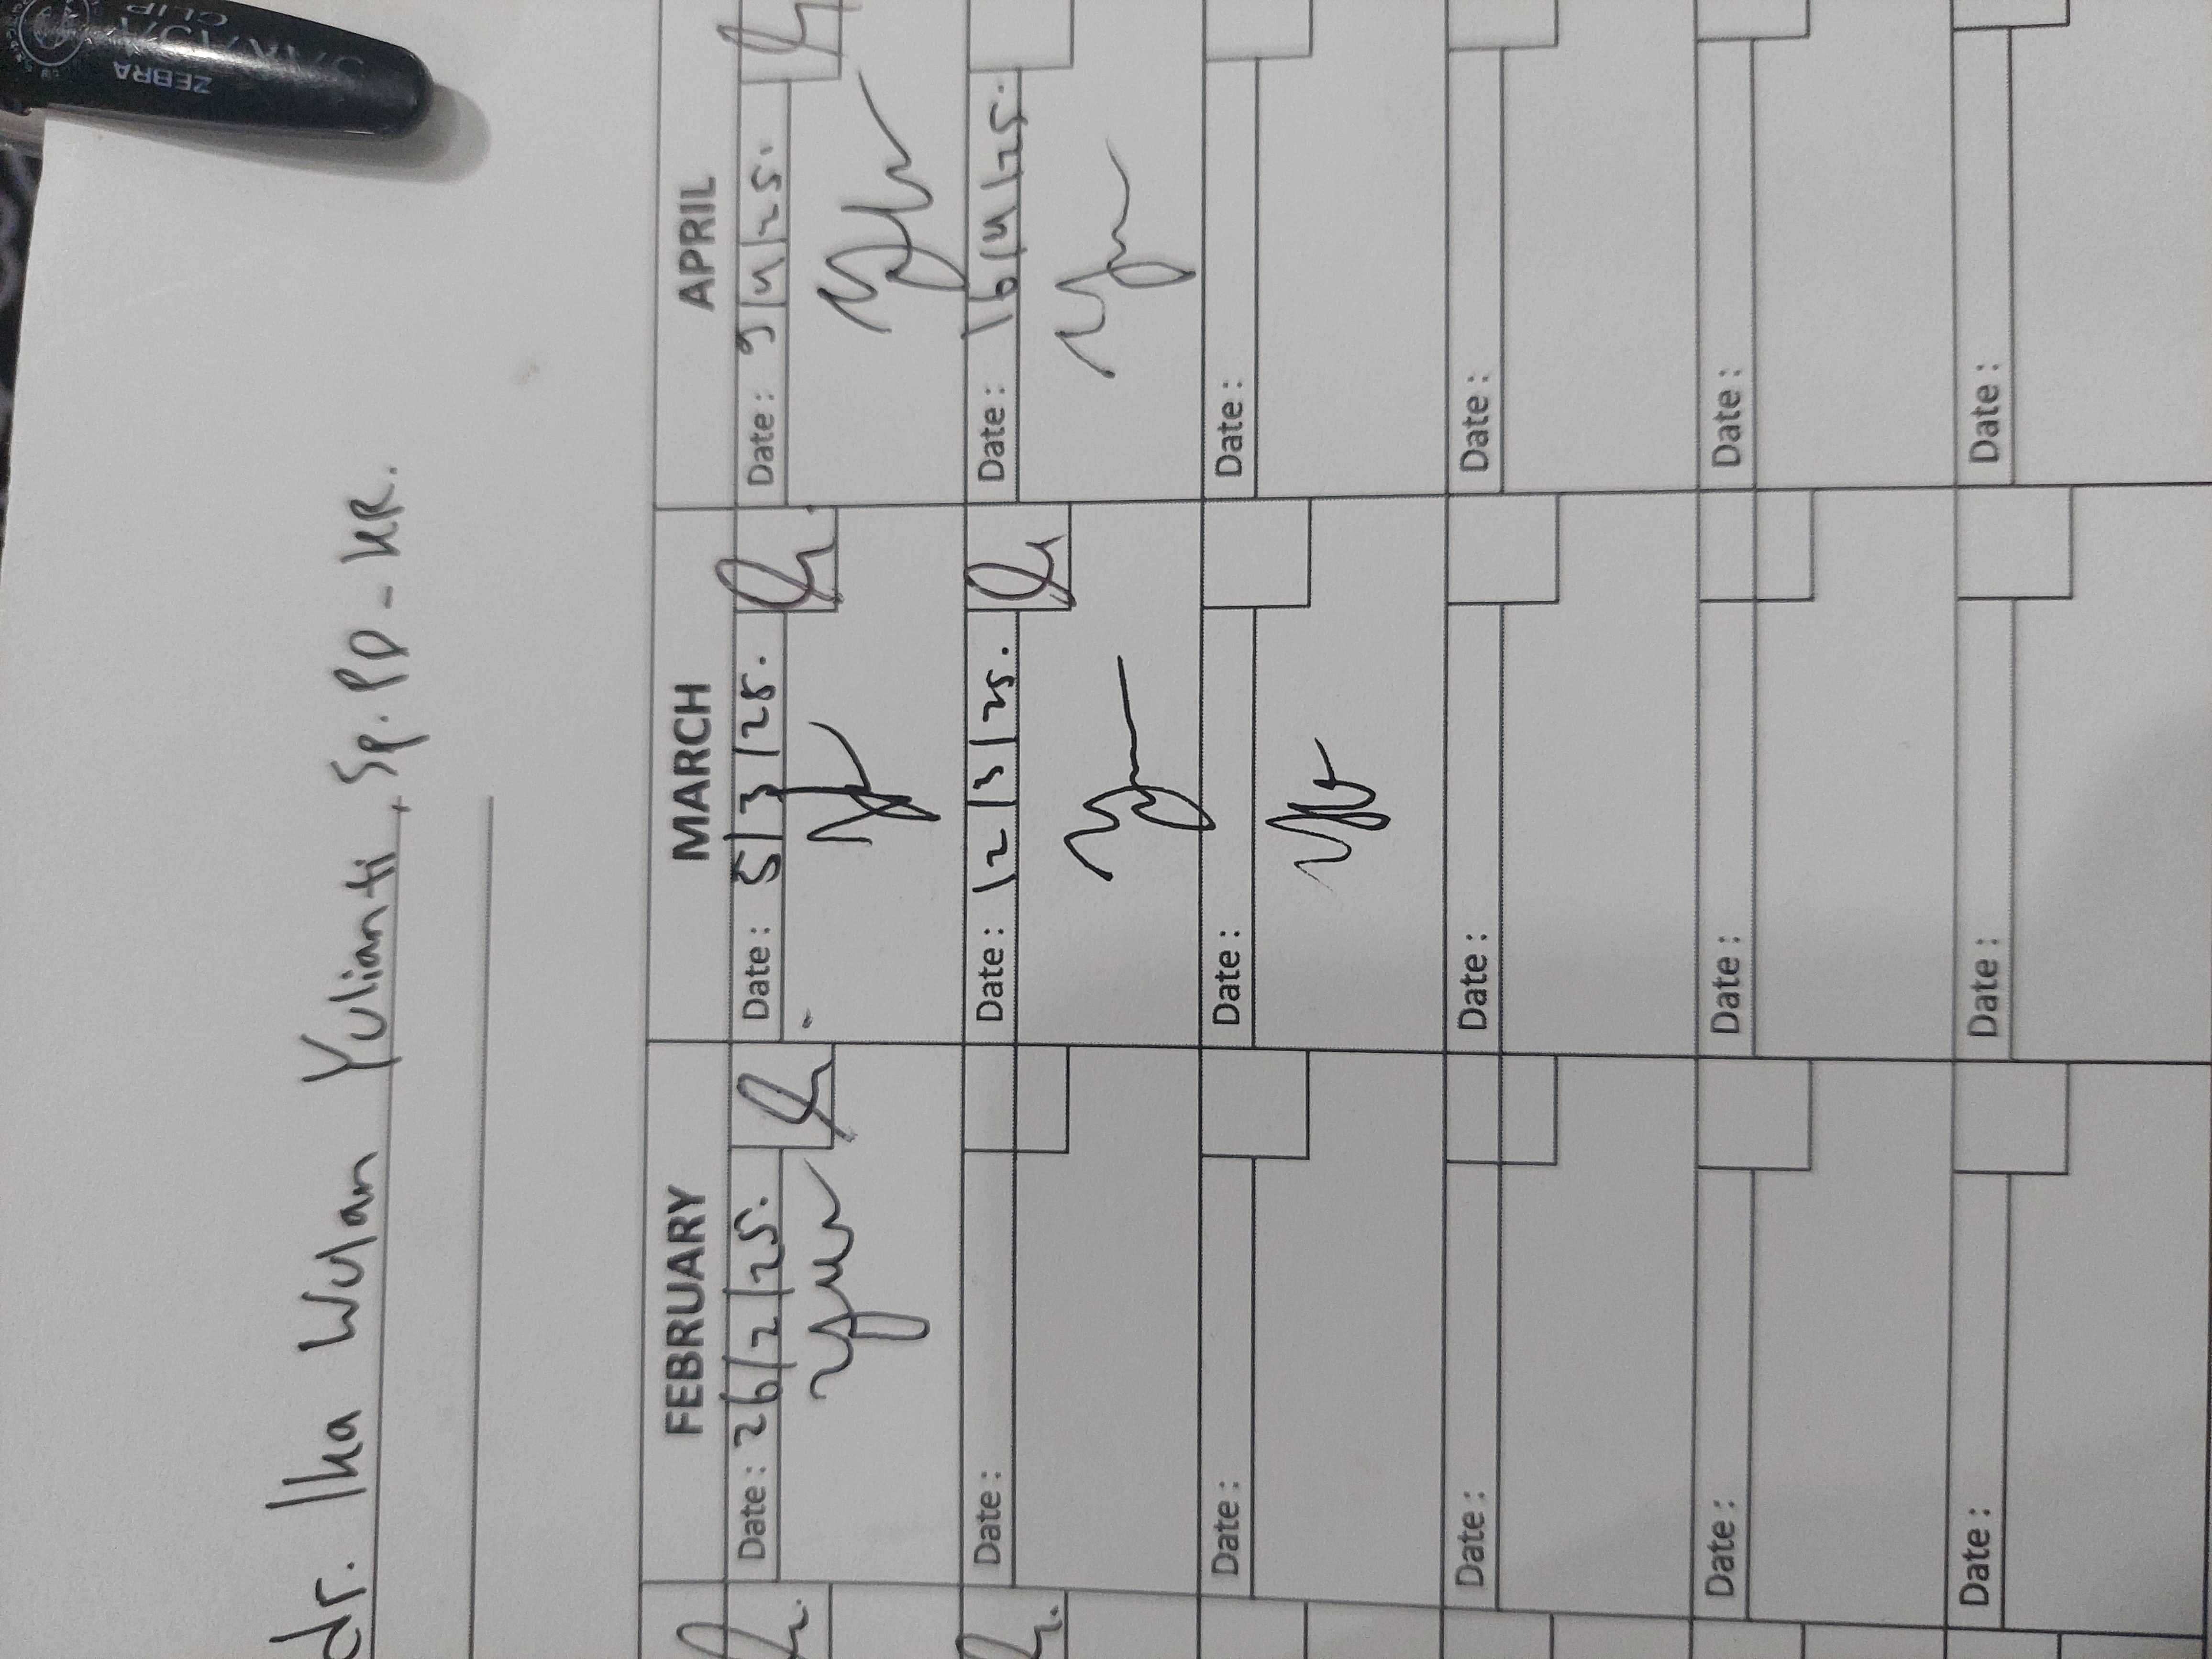 dr. Ika Wulan Yulianti, Sp.PD-KR.
FEBRUARY MARCH APRIL
Date: 26/2/25. Date: 5/3/25. Date: 9/4/25.
Date: Date: 12/3/25. Date: 16/4/25.
Date: Date: Date:
Date: Date: Date:
Date: Date: Date:
Date: Date: Date:
ZEBRA
CLIP